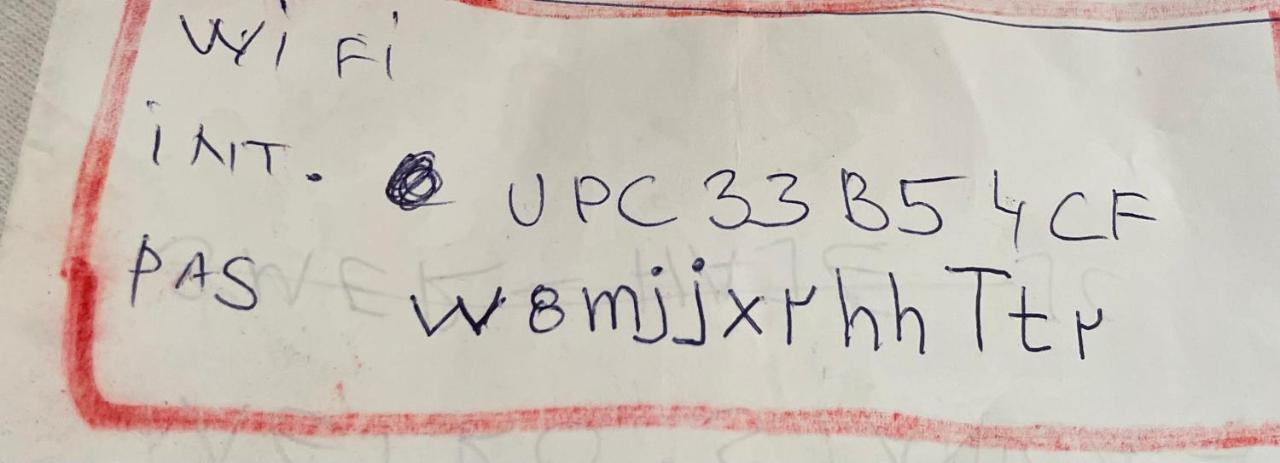 WiFi
iNT. UPC33B54CF
PAS w8mjjxrhhTtr